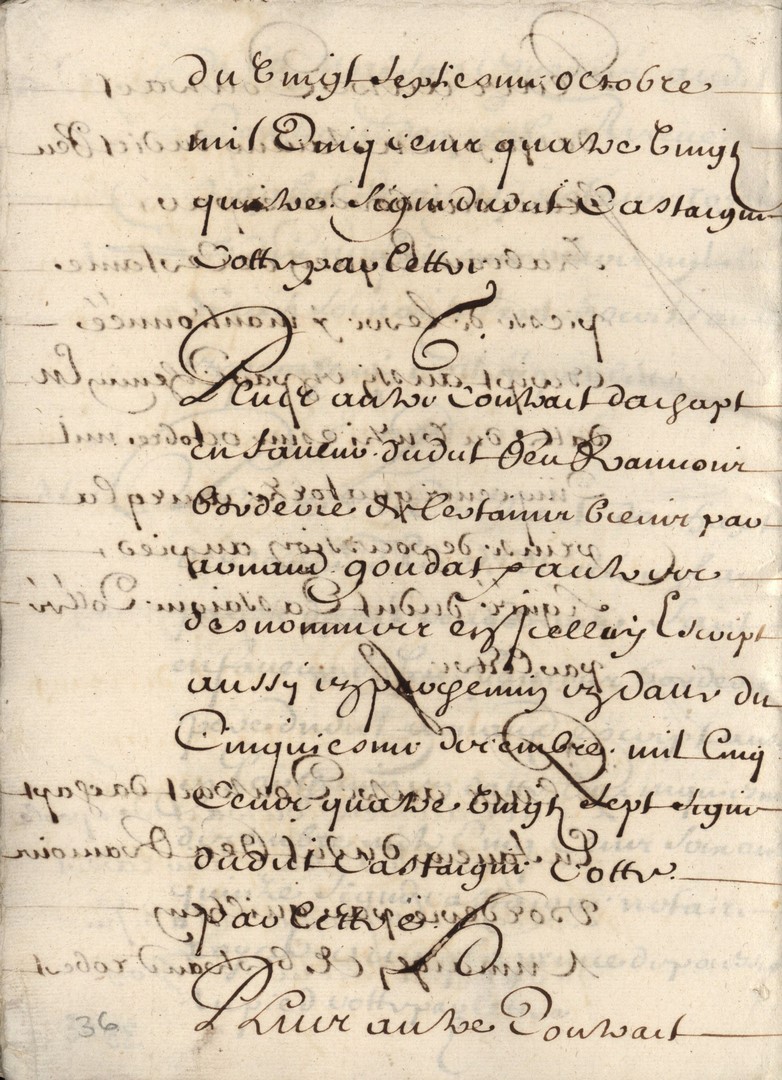 du vingt septiesme octobre
mil cinq cens quatre vingt
quatre signe dudit Castaigne
Cotte par lettre
G.
Plus autre contrait dachapt
en faveur dudit feu Ramond
borderie de lestanie consenti par
arnaud goudat & autres
desnommes en icelluy Escript
aussy en parchemin en date du
Cinquiesme decembre mil cinq
cens quatre vingt sept signe
dudit Castaigne Cotte
par lettre H
Plus autre Contrait
36